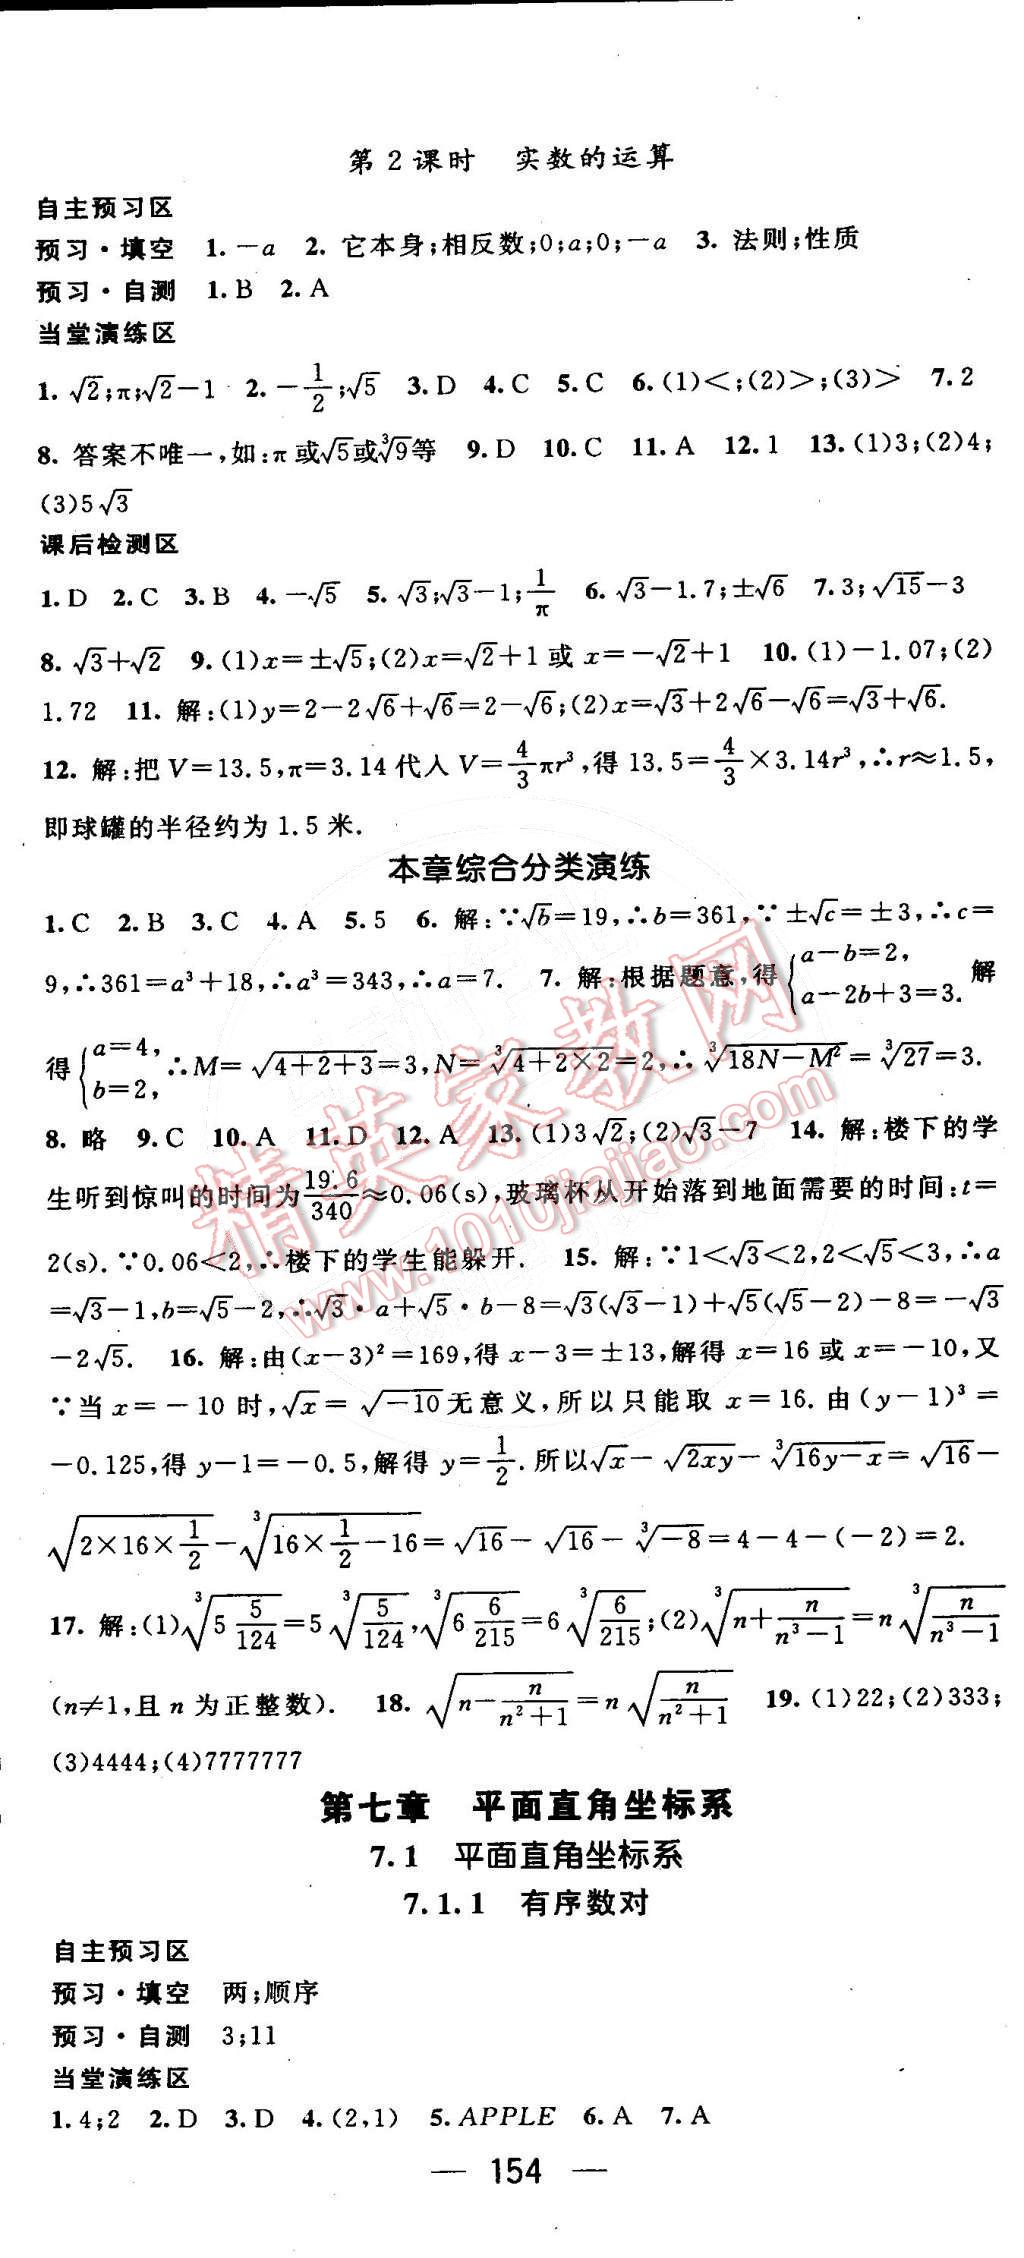 第2课时　实数的运算
自主预习区
预习·填空　1. －a　2. 它本身;相反数;0;a;0;－a　3. 法则;性质
预习·自测　1. B　2. A
当堂演练区
1. √2;π;√2－1　2. －1/2;√5　3. D　4. C　5. C　6. (1)＜;(2)＞;(3)＞　7. 2
8. 答案不唯一,如:π或√5或∛9等　9. D　10. C　11. A　12. 1　13. (1)3;(2)4;
(3)5√3
课后检测区
1. D　2. C　3. B　4. －√5　5. √3;√3－1;1/π　6. √3－1.7;±√6　7. 3;√15－3
8. √3＋√2　9. (1)x＝±√5;(2)x＝√2＋1或x＝－√2＋1　10. (1)－1.07;(2)
1.72　11. 解:(1)y＝2－2√6＋√6＝2－√6;(2)x＝√3＋2√6－√6＝√3＋√6.
12. 解:把V＝13.5,π＝3.14代入V＝4/3πr³,得13.5＝4/3×3.14r³,∴r≈1.5,
即球罐的半径约为1.5米.
本章综合分类演练
1. C　2. B　3. C　4. A　5. 5　6. 解:∵√b＝19,∴b＝361,∵±√c＝±3,∴c＝
9,∴361＝a³＋18,∴a³＝343,∴a＝7.　7. 解:根据题意,得{a－b＝2, a－2b＋3＝3.　解
得{a＝4, b＝2, ∴M＝√(4＋2＋3)＝3,N＝∛(4＋2×2)＝2,∴∛(18N－M²)＝∛27＝3.
8. 略　9. C　10. A　11. D　12. A　13. (1)3√2;(2)√3－7　14. 解:楼下的学
生听到惊叫的时间为19.6/340≈0.06(s),玻璃杯从开始落到地面需要的时间:t＝
2(s).∵0.06＜2,∴楼下的学生能躲开.　15. 解:∵1＜√3＜2,2＜√5＜3,∴a
＝√3－1,b＝√5－2,∴√3·a＋√5·b－8＝√3(√3－1)＋√5(√5－2)－8＝－√3
－2√5.　16. 解:由(x－3)²＝169,得x－3＝±13,解得x＝16或x＝－10,又
∵当x＝－10时,√x＝√(－10)无意义,所以只能取x＝16.由(y－1)³＝
－0.125,得y－1＝－0.5,解得y＝1/2.所以√x－√(2xy)－∛(16y－x)＝√16－
√(2×16×1/2)－∛(16×1/2－16)＝√16－√16－∛(－8)＝4－4－(－2)＝2.
17. 解:(1)∛(5 5/124)＝5∛(5/124),∛(6 6/215)＝6∛(6/215);(2)∛(n＋n/(n³－1))＝n∛(n/(n³－1))
(n≠1,且n为正整数).　18. √(n－n/(n²＋1))＝n√(n/(n²＋1))　19. (1)22;(2)333;
(3)4444;(4)7777777
第七章　平面直角坐标系
7.1　平面直角坐标系
7.1.1　有序数对
自主预习区
预习·填空　两;顺序
预习·自测　3;11
当堂演练区
1. 4;2　2. D　3. D　4. (2,1)　5. APPLE　6. A　7. A
— 154 —
精英家教网
www.1010jiajiao.com